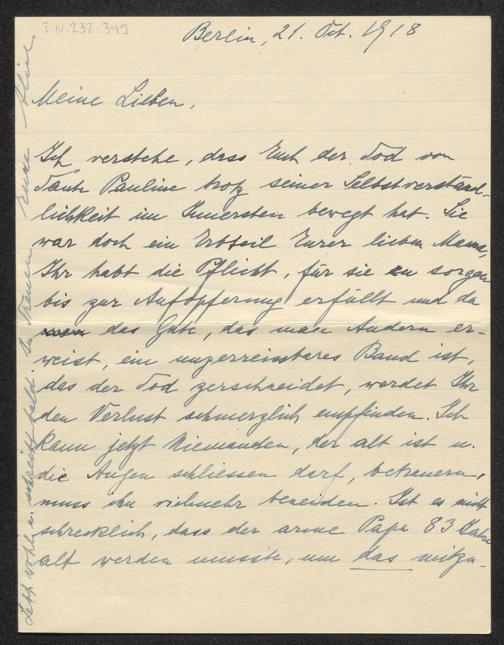 I.N. 232.349
Berlin, 21. Oct. 1918
Meine Lieben,
Ich verstehe, dass Euch der Tod von
Tante Pauline trotz seiner Selbstverständ-
lichkeit im Innersten bewegt hat. Sie
war doch ein Erbteil Eurer lieben Mama,
Ihr habt die Pflicht, für sie zu sorgen
bis zur Aufopferung erfüllt und da
das Gute, das man Andern er-
weist, ein unzerreissbares Band ist,
das der Tod zerschneidet, werdet Ihr
den Verlust schmerzlich empfinden. Ich
kann jetzt Niemanden, der alt ist u.
die Augen schliessen darf, betrauern,
muss ihn vielmehr beneiden. Ist es nicht
schrecklich, dass der arme Papa 83 Jahre
alt werden musste, um das mitzu-
Lebt wohl u. schreibt bald. In Treuen Eure Aline